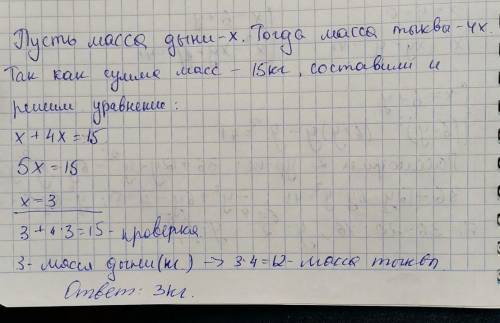 Пусть масса дыни - х. Тогда масса тыквы - 4х.
Так как сумма масс - 15кг, составим и
решим уравнение:
х + 4х = 15
5х = 15
х = 3
3 + 4·3 = 15 - проверка
3 - масса дыни (кг) -> 3·4 = 12 - масса тыквы.
Ответ: 3кг.